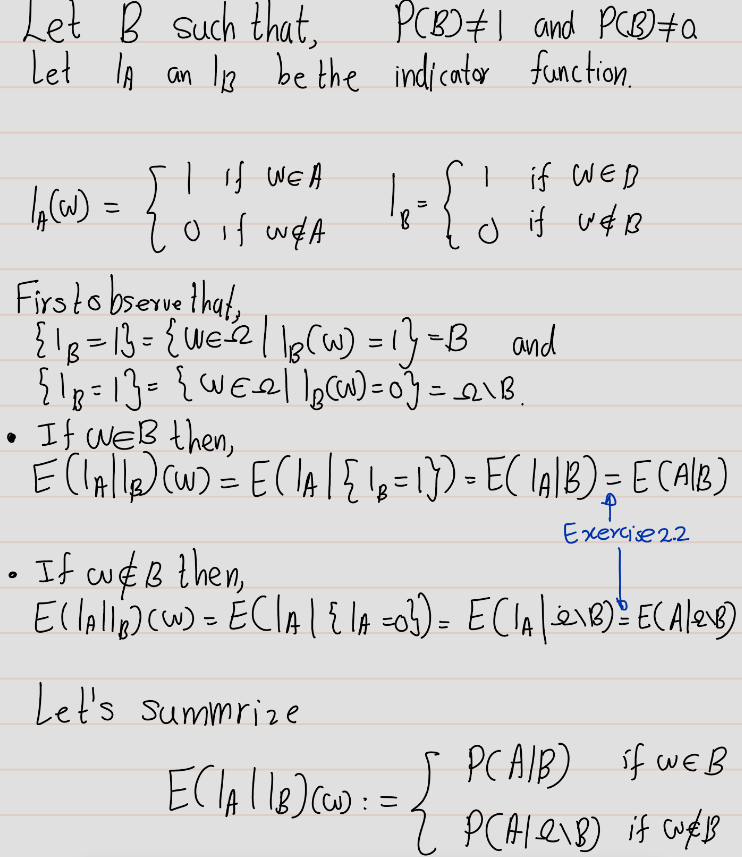 Let B such that, P(B)≠1 and P(B)≠0
Let 1_A an 1_B be the indicator function.
1_A(ω) = { 1 if ω∈A 1_B = { 1 if ω∈B
0 if ω∉A 0 if ω∉B
First observe that,
{1_B=1}={ω∈Ω | 1_B(ω) = 1} = B and
{1_B=1}= {ω∈Ω| 1_B(ω)=0} = Ω\B.
• If ω∈B then,
E(1_A|1_B)(ω) = E(1_A | {1_B=1}) = E(1_A|B) = E(A|B)
Exercise 2.2
• If ω∉B then,
E(1_A|1_B)(ω) = E(1_A | {1_A=0}) = E(1_A|Ω\B) = E(A|Ω\B)
Let's summrize
E(1_A|1_B)(ω) := { P(A|B) if ω∈B
P(A|Ω\B) if ω∉B